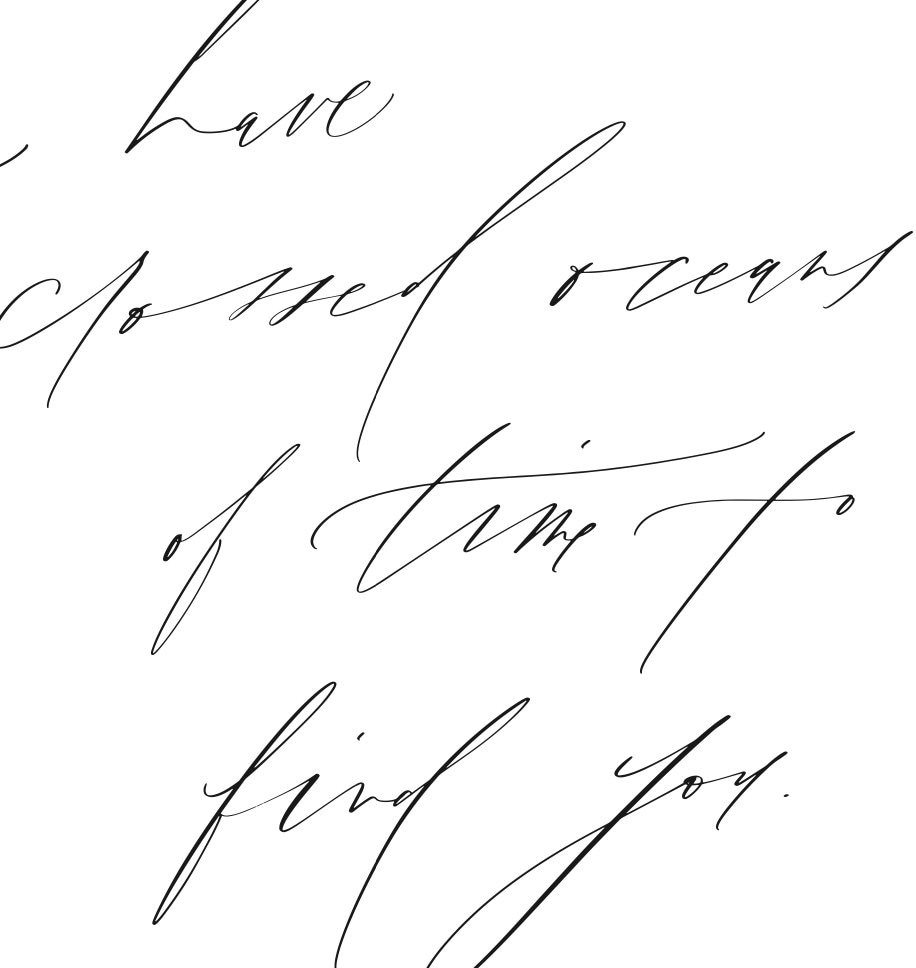 have
crossed oceans
of time to
find you.